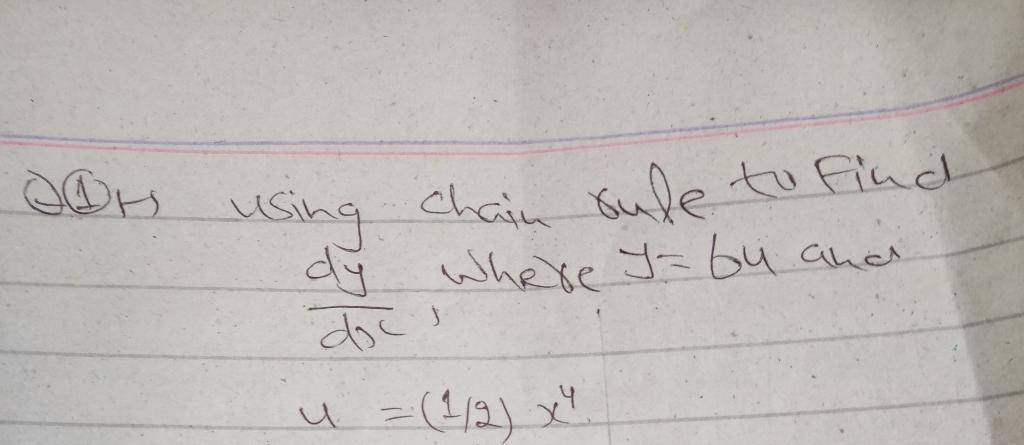 Q①↦ using chain rule to Find
dy/dx, where y = 6u and
u = (1/2) x⁴.